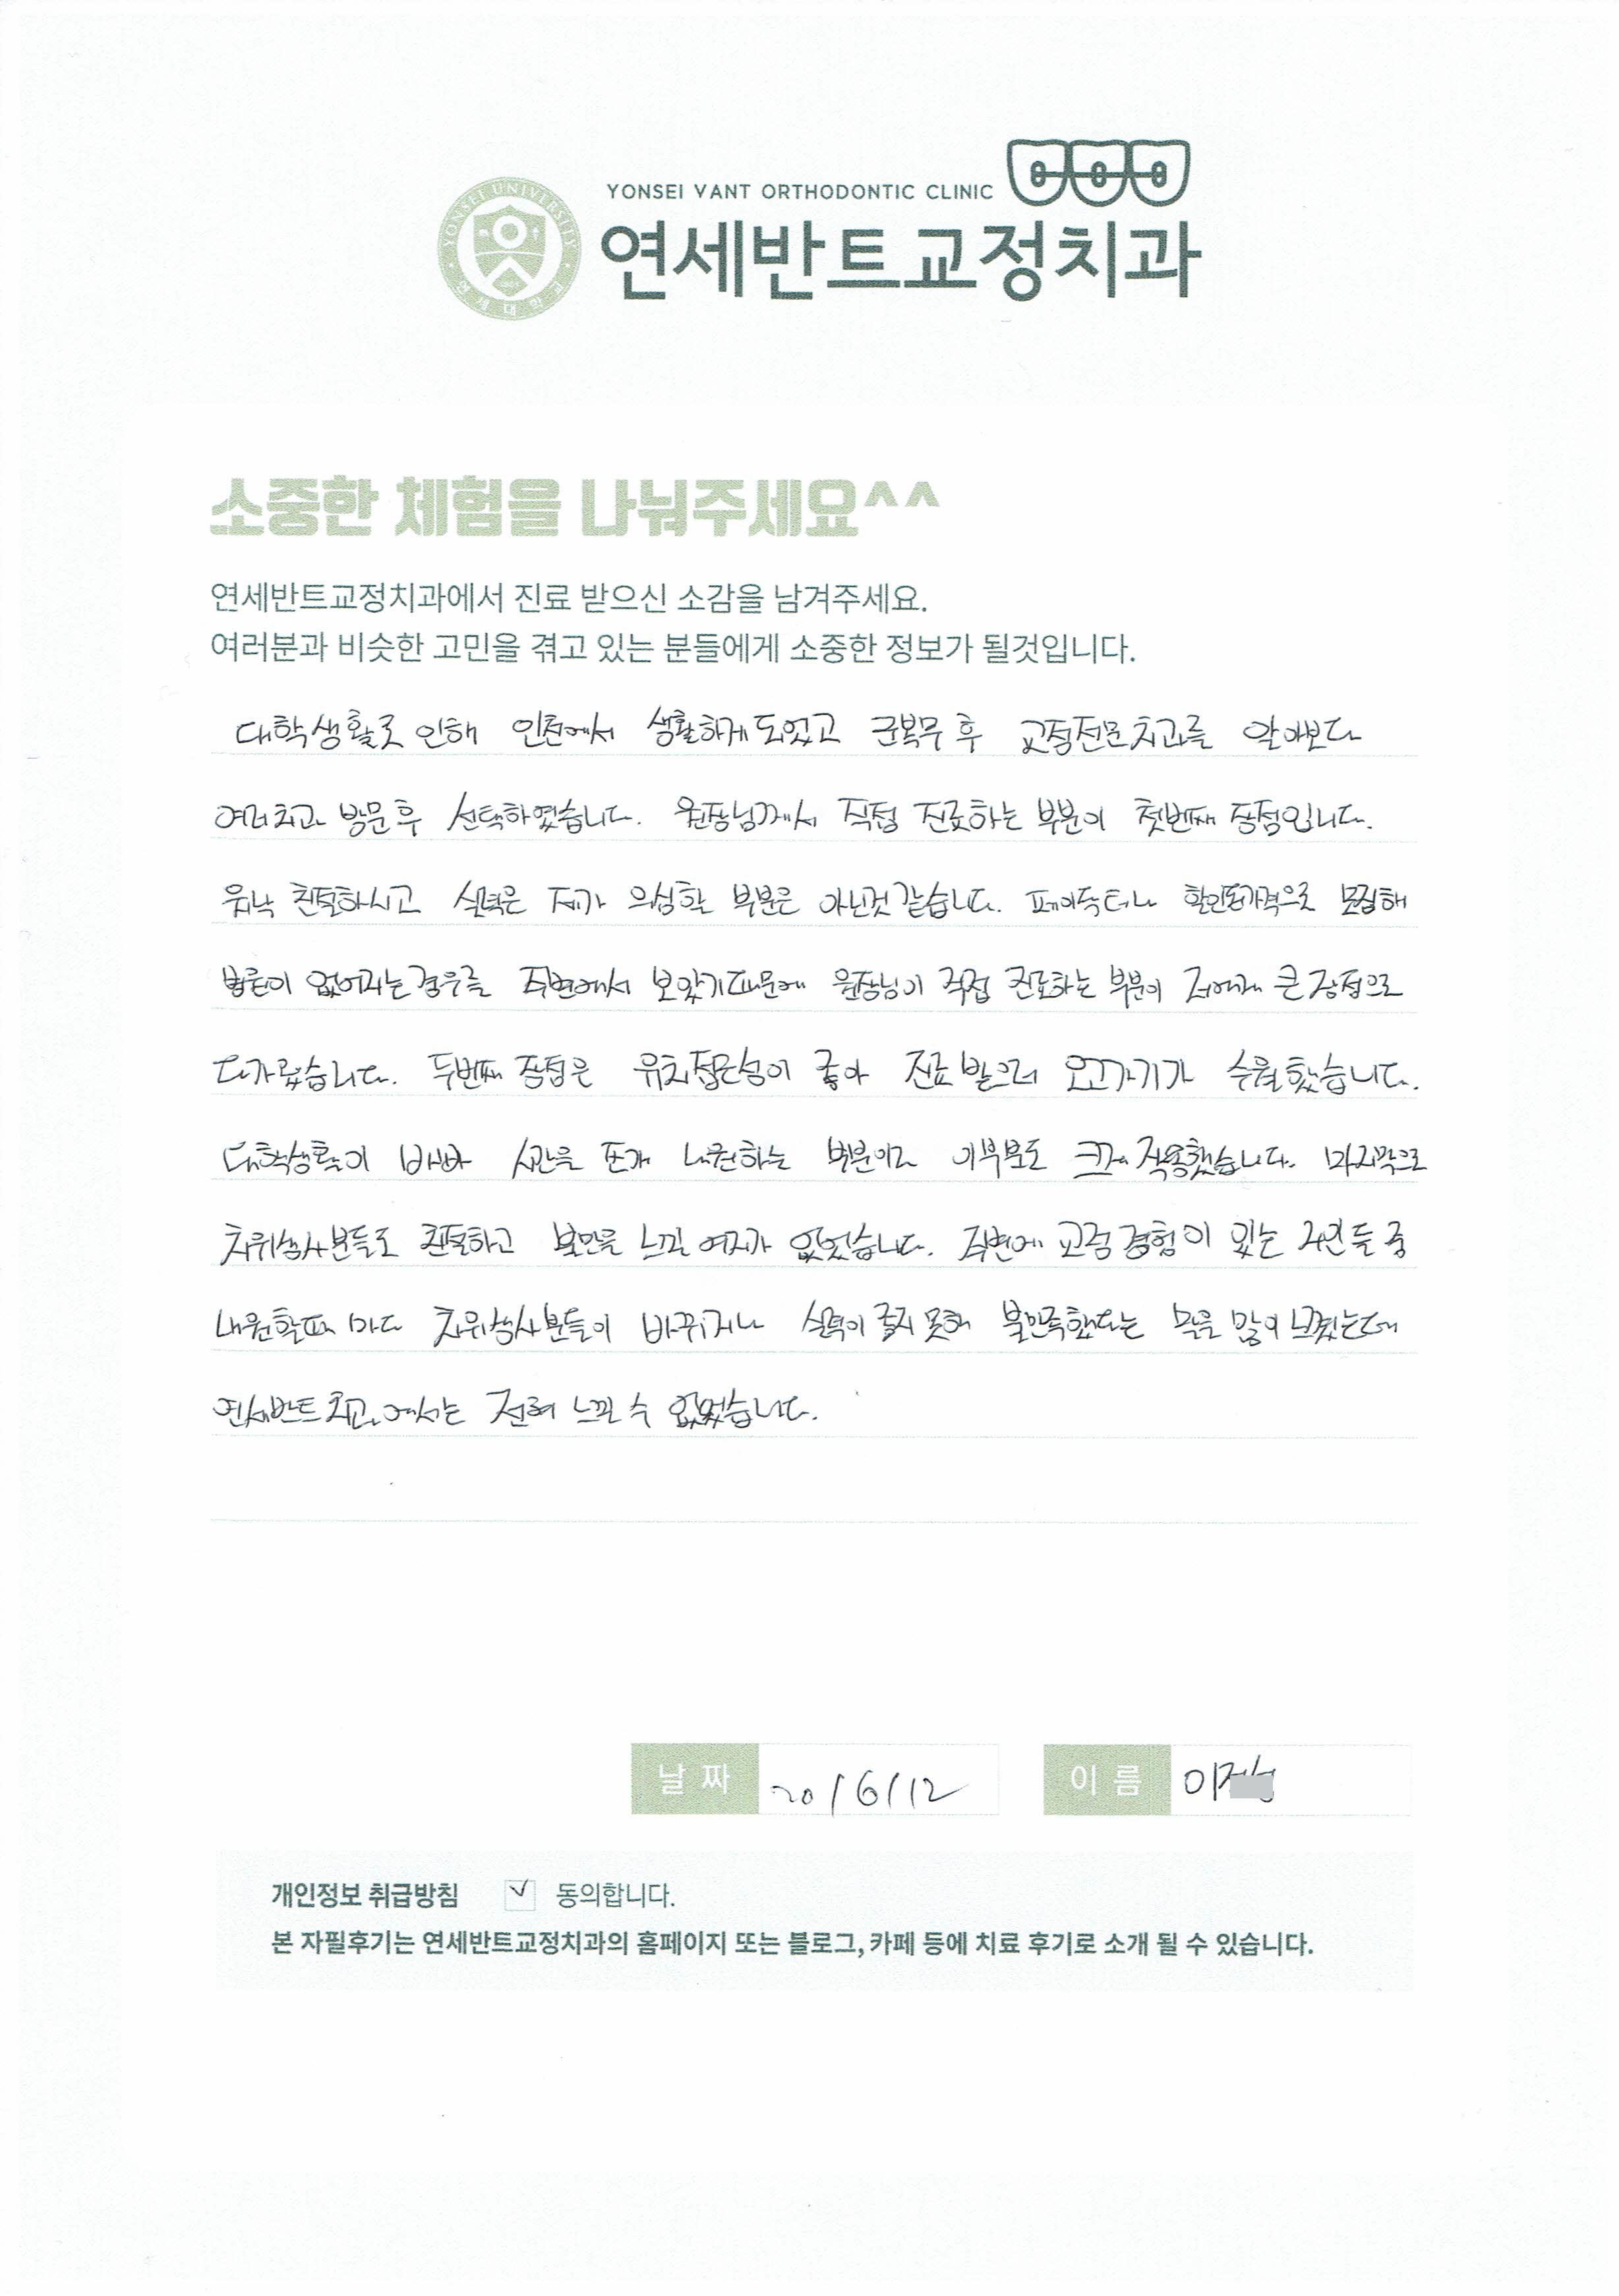 YONSEI VANT ORTHODONTIC CLINIC
연세반트교정치과
YONSEI UNIVERSITY
연세대학교
소중한 체험을 나눠주세요^^
연세반트교정치과에서 진료 받으신 소감을 남겨주세요.
여러분과 비슷한 고민을 겪고 있는 분들에게 소중한 정보가 될것입니다.
대학생활로 인해 인천에서 생활하게되었고 군복무 후 교정전문치과를 알아보다
여러치과 방문 후 선택하였습니다. 원장님께서 직접 진료하는 부분이 첫번째 장점입니다.
워낙 친절하시고 실력은 제가 의심할 부분은 아닌것 같습니다. 페이닥터나 할인된가격으로 모집해
병원이 없어지는경우를 주변에서 보았기때문에 원장님이 직접 진료하는 부분이 저에게 큰 장점으로
다가왔습니다. 두번째 장점은 위치접근성이 좋아 진료 받으러 오고가기가 수월했습니다.
대학생활이 바빠 시간을 쪼개 내원하는 부분이라 이부분도 크게 작용했습니다. 마지막으로
치위생사분들도 친절하고 불만을 느낄 여지가 없었습니다. 주변에 교정 경험이 있는 지인들 중
내원할때 마다 치위생사분들이 바뀌거나 실력이 좋지 못해 불만족했다는 말을 많이 느꼈는데
연세반트치과에서는 전혀 느낄 수 없었습니다.
날 짜 20/6/12 이 름 이
개인정보 취급방침 동의합니다.
본 자필후기는 연세반트교정치과의 홈페이지 또는 블로그, 카페 등에 치료 후기로 소개 될 수 있습니다.